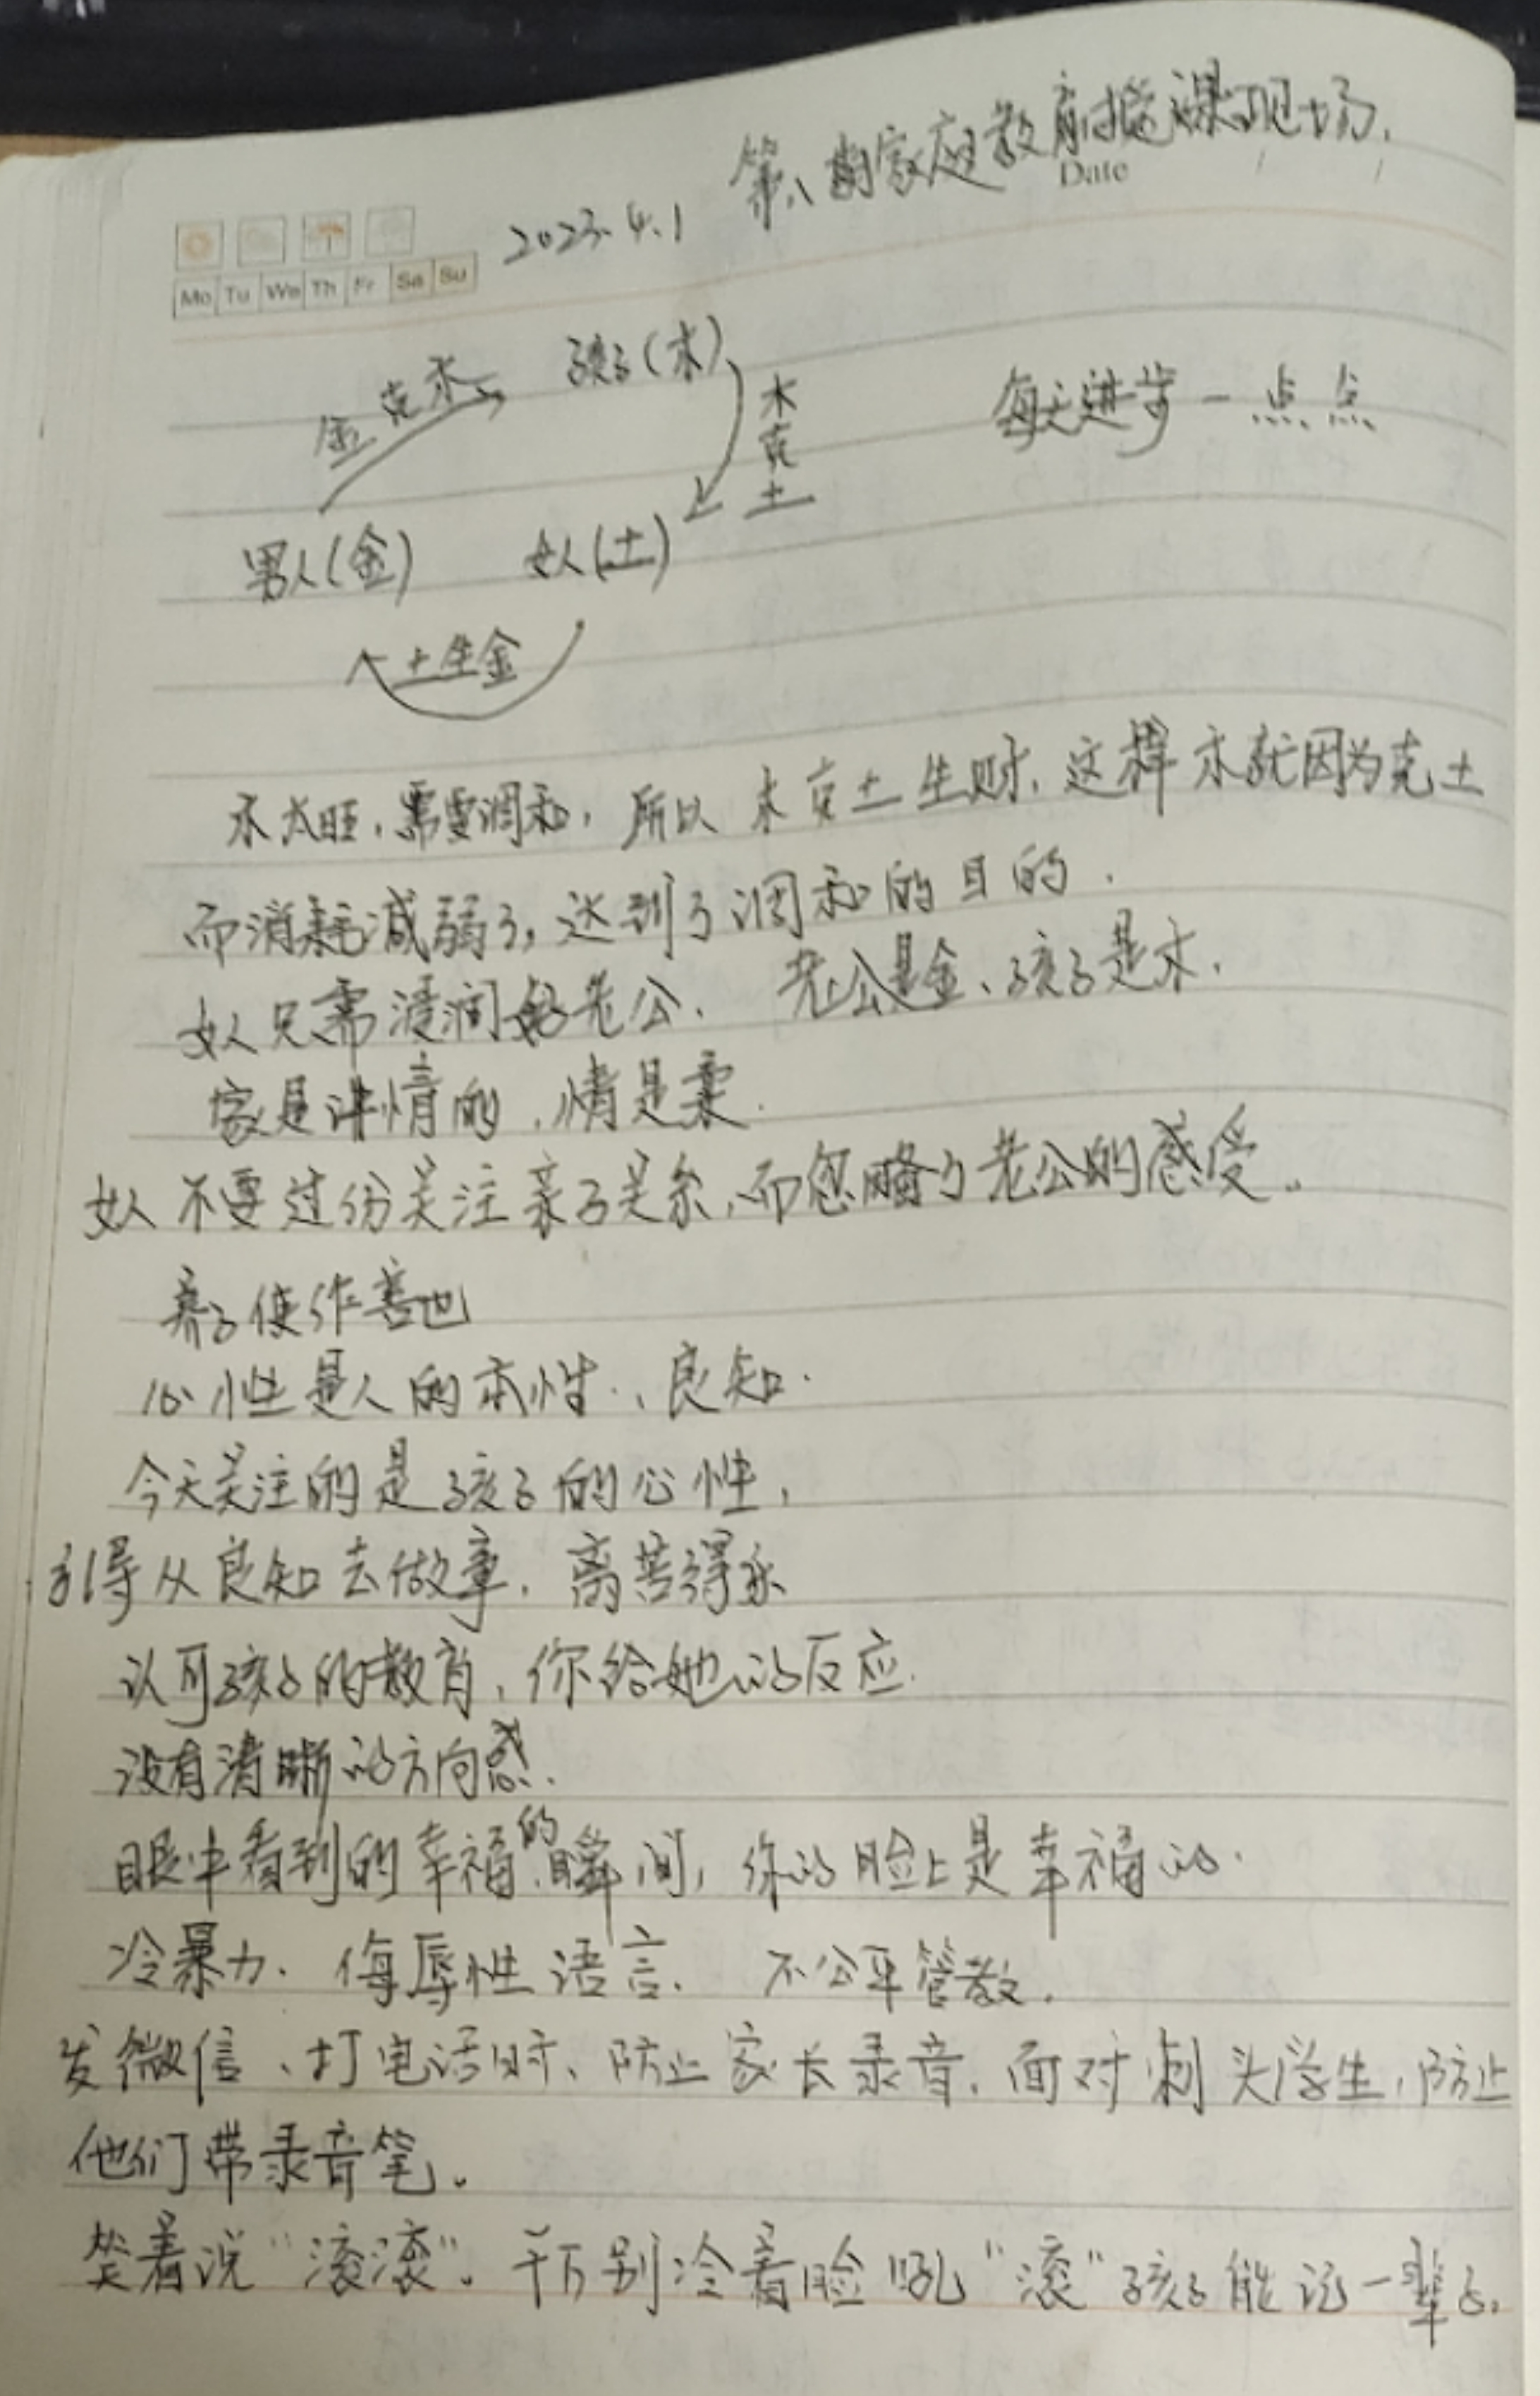 第八期家庭教育授课现场.
Date
2023.4.1
Mo Tu We Th Fr Sa Su
金克木
孩子(木)
木克土
每天进步一点点
男人(金) 女人(土)
土生金
木太旺,需要调和,所以木克土生财,这样木就因为克土
而消耗减弱了,达到了调和的目的.
女人只需浸润好老公、 老公是金、孩子是木.
家是讲情的,情是柔.
女人不要过份关注亲子关系,而忽略了老公的感受。
养子使作善也
心性是人的本性、良知.
今天关注的是孩子的心性,
引导从良知去做事,离苦得乐
认可孩子的教育,你给她的反应.
没有清晰的方向感.
眼中看到的幸福的瞬间,你的脸上是幸福的.
冷暴力. 侮辱性语言. 不公平管教.
发微信、打电话时、防止家长录音.面对刺头学生,防止
他们带录音笔。
笑着说“滚滚”。千万别冷着脸吼“滚”孩子能记一辈子.